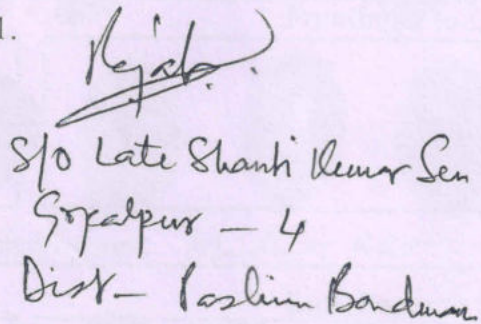 1.
S/O Late Shanti Kumar Sen
Gopalpur – 4
Dist – Paschim Bardwan